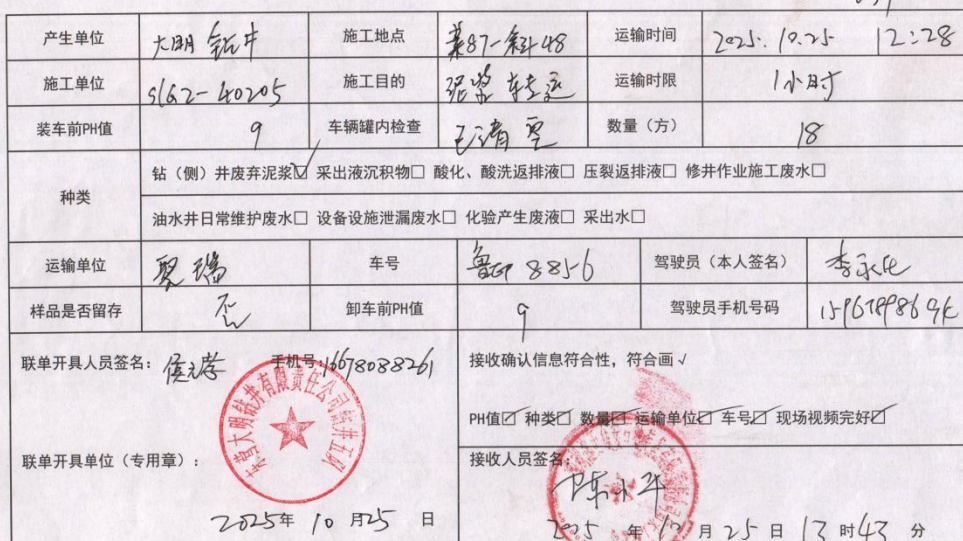 产生单位 大明钻井 施工地点 莱87-斜48 运输时间 2025.10.25 12:28
施工单位 SLG2-40205 施工目的 转运 运输时限 1小时
装车前PH值 9 车辆罐内检查 已清空 数量(方) 18
种类 钻(侧)井废弃泥浆☑ 采出液沉积物□ 酸化、酸洗返排液□ 压裂返排液□ 修井作业施工废水□
油水井日常维护废水□ 设备设施泄漏废水□ 化验产生废液□ 采出水□
运输单位 车号 8856 驾驶员(本人签名) 李永化
样品是否留存 否 卸车前PH值 9 驾驶员手机号码
联单开具人员签名: 手机号: 16678088261
东营大明钻井有限责任公司钻井五队
联单开具单位(专用章):
2025年 10 月25 日
接收确认信息符合性,符合画√
PH值☑ 种类☑ 数量☑ 运输单位☑ 车号☑ 现场视频完好☑
接收人员签名: 陈小平
2025 年 10 月 25 日 13 时 43 分